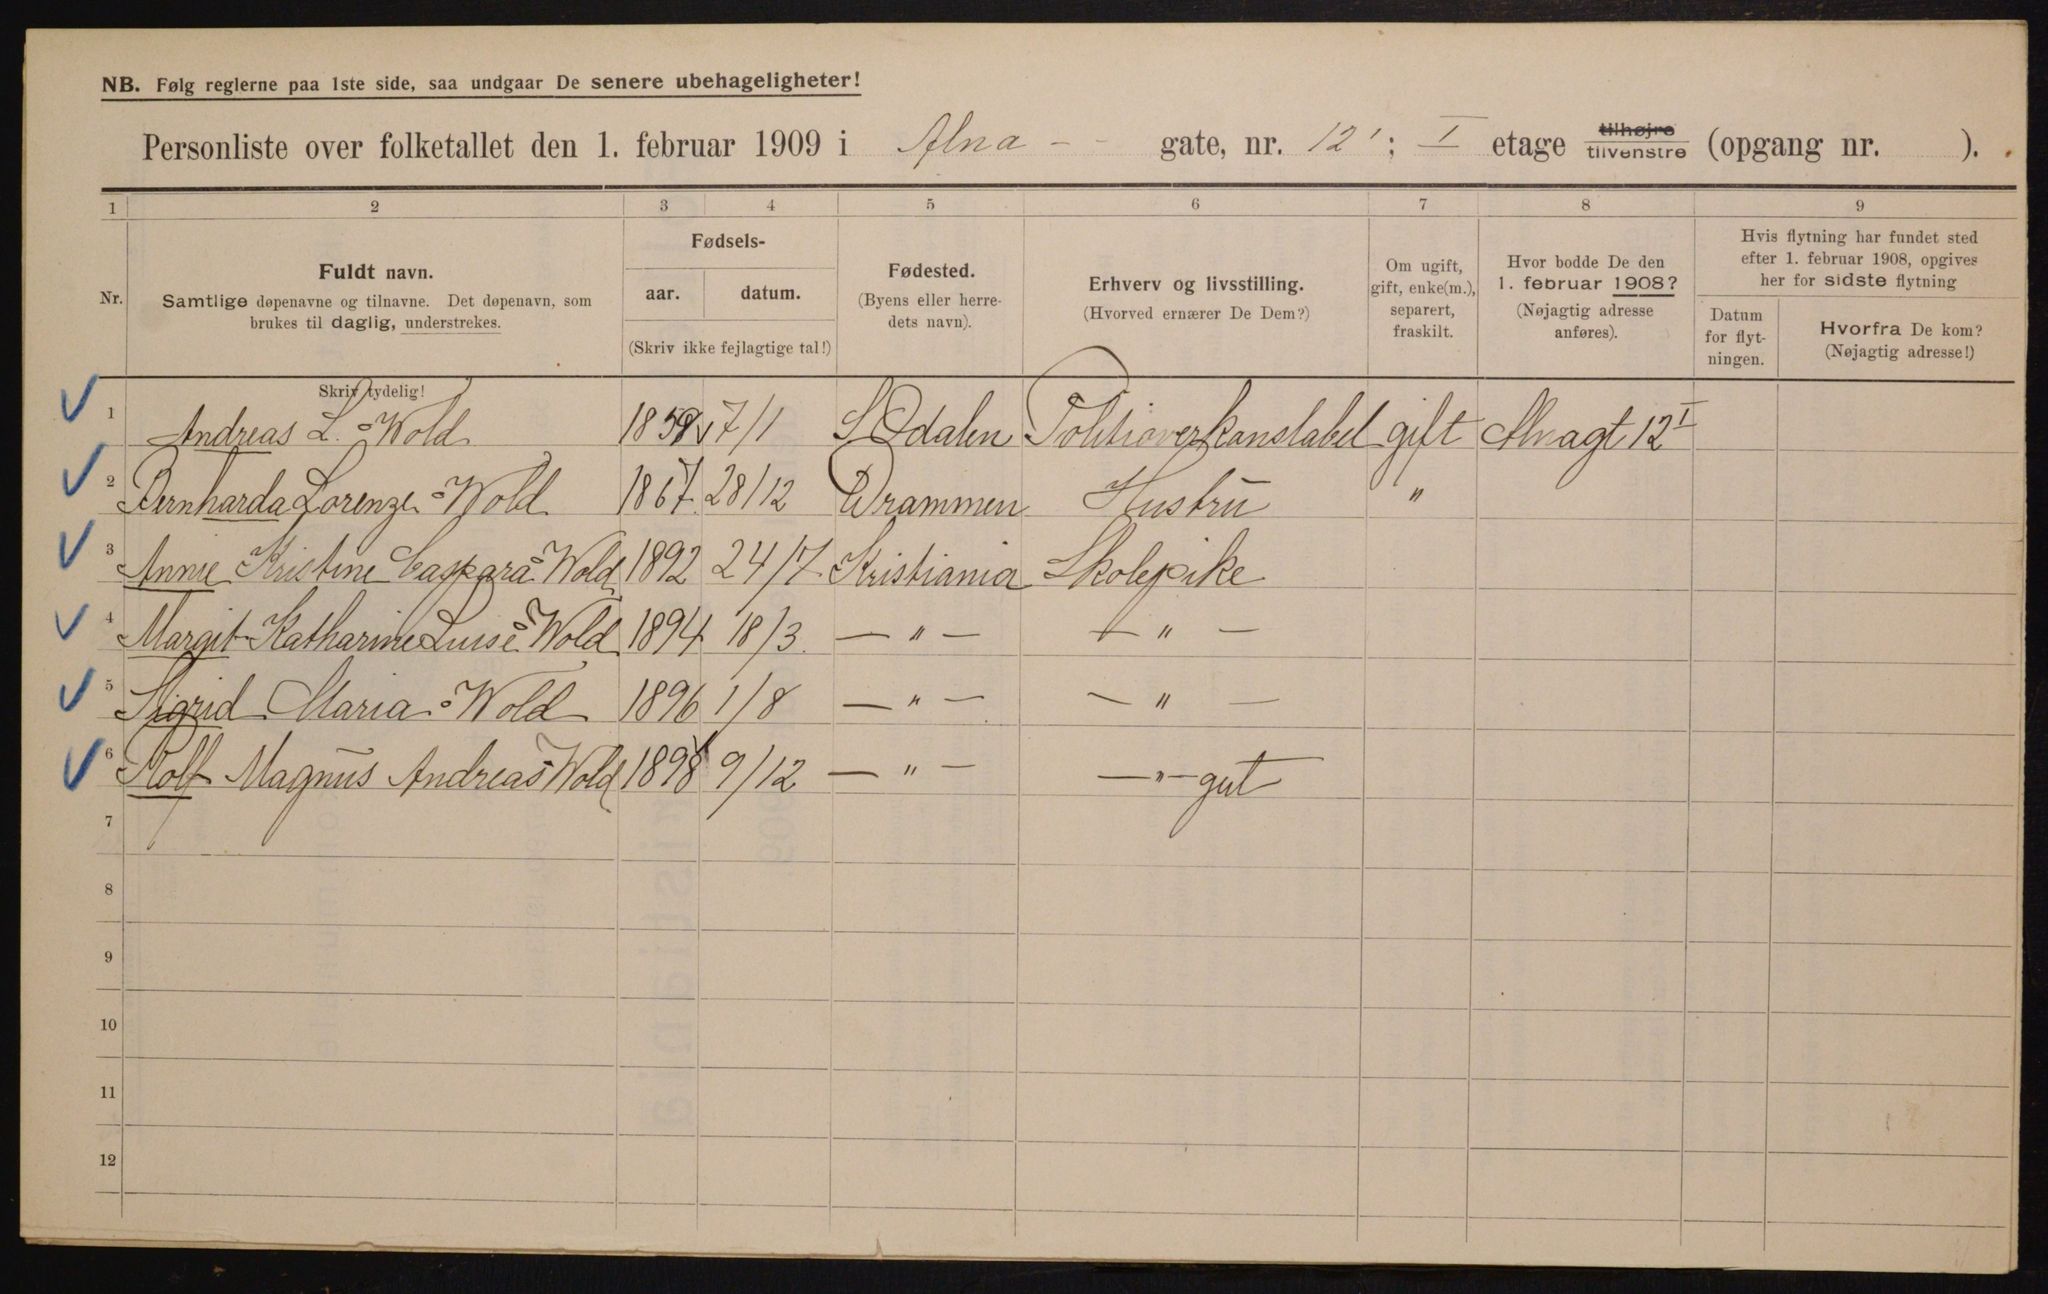 NB. Følg reglerne paa 1ste side, saa undgaar De senere ubehageligheter!
Personliste over folketallet den 1. februar 1909 i Alna - - gate, nr. 12 ; I etage tilhøjre tilvenstre (opgang nr. ).
1 2 3 4 5 6 7 8 9
Nr. Fuldt navn. Samtlige døpenavne og tilnavne. Det døpenavn, som brukes til daglig, understrekes.
Fødsels- aar. datum. (Skriv ikke fejlagtige tal!)
Fødested. (Byens eller herredets navn).
Erhverv og livsstilling. (Hvorved ernærer De Dem?)
Om ugift, gift, enke(m.), separert, fraskilt.
Hvor bodde De den 1. februar 1908? (Nøjagtig adresse anføres).
Hvis flytning har fundet sted efter 1. februar 1908, opgives her for sidste flytning
Datum for flytningen. Hvorfra De kom? (Nøjagtig adresse!)
Skriv tydelig!
1 Andreas L. Wold 7/1 S Odalen Politioverkonstabel gift Alnagt 12 I
2 Bernharda Lorenze Wold 1867 28/12 Drammen Hustru "
3 Annie Kristine Caspara Wold 1892 24/7 Kristiania Skolepike
4 Margit Katharine Luise Wold 1894 18/3 — " — — " —
5 Sigrid Maria Wold 1896 1/8 — " — — " —
6 Rolf Magnus Andreas Wold 1898 9/12 — " — — " — gut
7
8
9
10
11
12